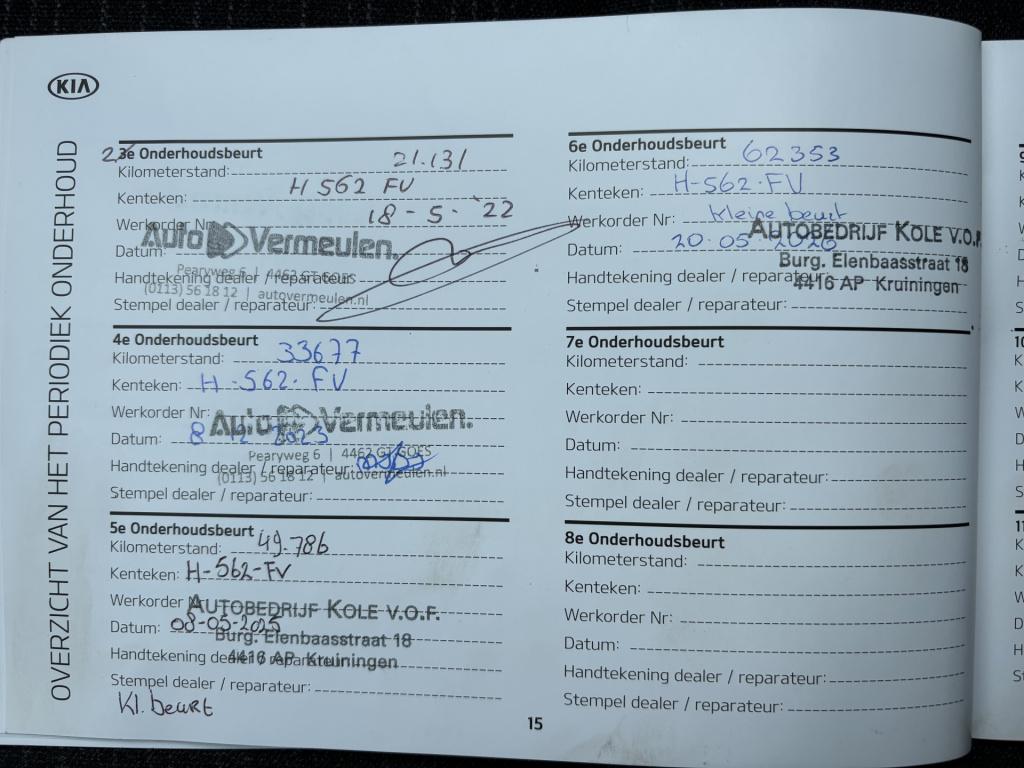 KIA
OVERZICHT VAN HET PERIODIEK ONDERHOUD
2 3e Onderhoudsbeurt
Kilometerstand: 21.131
Kenteken: H 562 FV
Werkorder Nr: 18-5-'22
Datum:
Auto Vermeulen.
Pearyweg 6 | 4462 GT GOES
Handtekening dealer / reparateur:
(0113) 56 18 12 | autovermeulen.nl
Stempel dealer / reparateur:
4e Onderhoudsbeurt
Kilometerstand: 33677
Kenteken: H-562-FV
Werkorder Nr:
Auto Vermeulen.
Datum: 8 12 2023
Pearyweg 6 | 4462 GT GOES
Handtekening dealer / reparateur:
(0113) 56 18 12 | autovermeulen.nl
Stempel dealer / reparateur:
5e Onderhoudsbeurt
Kilometerstand: 49.786
Kenteken: H-562-FV
Werkorder
AUTOBEDRIJF KOLE V.O.F.
Datum: 08-05-2025
Burg. Elenbaasstraat 18
Handtekening dealer / reparateur:
4416 AP Kruiningen
Stempel dealer / reparateur:
Kl. beurt
6e Onderhoudsbeurt
Kilometerstand: 62353
Kenteken: H-562-FV
Werkorder Nr: kleine beurt
AUTOBEDRIJF KOLE V.O.F.
Datum: 20-05-2026
Burg. Elenbaasstraat 18
Handtekening dealer / reparateur:
4416 AP Kruiningen
Stempel dealer / reparateur:
7e Onderhoudsbeurt
Kilometerstand:
Kenteken:
Werkorder Nr:
Datum:
Handtekening dealer / reparateur:
Stempel dealer / reparateur:
8e Onderhoudsbeurt
Kilometerstand:
Kenteken:
Werkorder Nr:
Datum:
Handtekening dealer / reparateur:
Stempel dealer / reparateur:
15